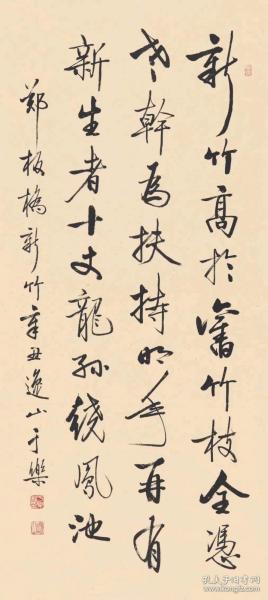 新竹高於舊竹枝全憑
老幹為扶持明年再有
新生者十丈龍孫繞鳳池
鄭板橋新竹辛丑逸山于樂
孔夫子旧书网